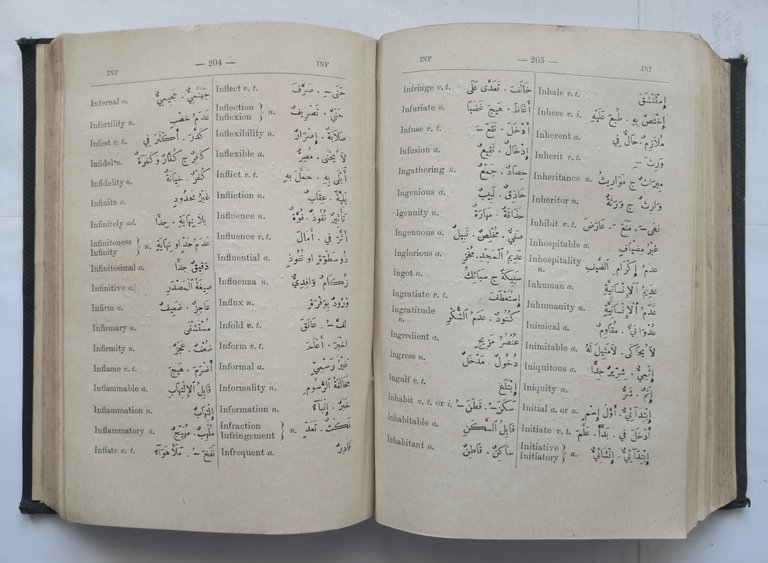 INF — 204 — INF
Infernal a. جَهَنَّمِيٌّ . جَحِيمِيٌّ
Infertility n. عَدَمُ خِصْبٍ
Infest v. t. كَدَّرَ . أَكْثَرَ فِي
Infidel n. كَافِرٌ ج كُفَّارٌ وَكَفَرَةٌ
Infidelity n. كُفْرٌ . خِيَانَةٌ
Infinite a. غَيْرُ مَحْدُودٍ
Infinitely ad. بِلَا نِهَايَةٍ . جِدًّا
Infiniteness
Infinity } n. عَدَمُ حَدٍّ او نِهَايَةٍ
Infinitesimal a. دَقِيقٌ جِدًّا
Infinitive a. صِيغَةُ ٱلْمَصْدَرِ
Infirm a. عَاجِزٌ . ضَعِيفٌ
Infirmary n. مُسْتَشْفًى
Infirmity n. ضُعْفٌ . عَجْزٌ
Inflame v. t. أَضْرَمَ . هَيَّجَ
Inflammable a. قَابِلُ ٱلِٱلْتِهَابِ
Inflammation n. إِلْتِهَابٌ
Inflammatory a. مُلْهِبٌ . مُهَيِّجٌ
Inflate v. t. نَفَخَ ـُ . مَلَأَ هَوَاءً
Inflect v. t. حَنَى ـِ . صَرَّفَ
Inflection
Inflexion } n. حَنْيٌ . تَصْرِيفٌ
Inflexibility n. صَلَابَةٌ . إِصْرَارٌ
Inflexible a. لَا يُحْنَى . مُصِرٌّ
Inflict v. t. أَبْلَى بِهِ . حَمَلَ بِهِ
Infliction n. بَلِيَّةٌ . عِقَابٌ
Influence n. تَأْثِيرٌ . نُفُوذٌ . قُوَّةٌ
Influence v. t. أَثَّرَ فِي . أَمَالَ
Influential a. ذُو سَطْوَةٍ او نُفُوذٍ
Influenza n. زُكَامٌ وَافِدِيٌّ
Influx n. وُرُودٌ بِوَفْرَةٍ
Infold v. t. لَفَّ ـُ . عَانَقَ
Inform v. t. أَخْبَرَ . أَعْلَمَ
Informal a. غَيْرُ رَسْمِيٍّ
Informality n. مُخَالَفَةُ ٱلرُّسُومِ
Information n. خَبَرٌ . إِنْبَاءٌ
Infraction
Infringement } n. نَكْثٌ . تَعَدٍّ
Infrequent a. نَادِرٌ
INF — 205 — INI
Infringe v. t. خَالَفَ . تَعَدَّى عَلَى
Infuriate v. t. أَغَاظَ . هَيَّجَ غَضَبًا
Infuse v. t. أَدْخَلَ . نَقَعَ ـَ
Infusion n. إِدْخَالٌ . نَقِيعٌ
Ingathering n. حِصَادٌ . جَمْعٌ
Ingenious a. حَاذِقٌ . لَبِيبٌ
Igenuity n. حَذَاقَةٌ . مَهَارَةٌ
Ingenuous a. صَفِيٌّ . مُخْلِصٌ . نَبِيلٌ
Inglorious a. عَدِيمُ ٱلْمَجْدِ . مُخْزٍ
Ingot n. سَبِيكَةٌ ج سَبَائِكُ
Ingratiate v. t. إِسْتَعْطَفَ
Ingratitude n. كُنُودٌ . عَدَمُ ٱلشُّكْرِ
Ingredient a. عُنْصُرُ مَزِيجٍ
Ingress n. دُخُولٌ . مَدْخَلٌ
Ingulf v. t. إِبْتَلَعَ
Inhabit v. t. or i. سَكَنَ ـُ . قَطَنَ ـُ
Inhabitable a. قَابِلُ ٱلسَّكَنِ
Inhabitant n. سَاكِنٌ . قَاطِنٌ
Inhale v. t. إِسْتَنْشَقَ
Inhere v. i. إِخْتَصَّ بِهِ . طُبِعَ عَلَيْهِ
Inherent a. مُلَازِمٌ . حَالٌّ فِي
Inherit v. t. وَرِثَ ـِ
Inheritance n. مِيرَاثٌ ج مَوَارِيثُ
Inheritor n. وَارِثٌ ج وَرَثَةٌ
Inhibit v. t. نَهَى ـَ . مَنَعَ ـَ . عَارَضَ
Inhospitable a. غَيْرُ مِضْيَافٍ
Inhospitality n. عَدَمُ إِكْرَامِ ٱلضَّيْفِ
Inhuman a. عَدِيمُ ٱلْإِنْسَانِيَّةِ
Inhumanity n. عَدَمُ ٱلْإِنْسَانِيَّةِ
Inimical a. عُدْوَانِيٌّ . مُقَاوِمٌ
Inimitable a. لَا يُحَاكَى . لَا مَثِيلَ لَهُ
Iniquitous a. إِثْمِيٌّ . شِرِّيرٌ جِدًّا
Iniquity n. إِثْمٌ . شَرٌّ
Initial a. or n. إِبْتِدَآئِيٌّ . أَوَّلُ إِسْمٍ
Initiate v. t. أَدْخَلَ فِي . بَدَأَ . عَلَّمَ
Initiative
Initiatory } a. إِبْتِدَآئِيٌّ . إِنْشَائِيٌّ